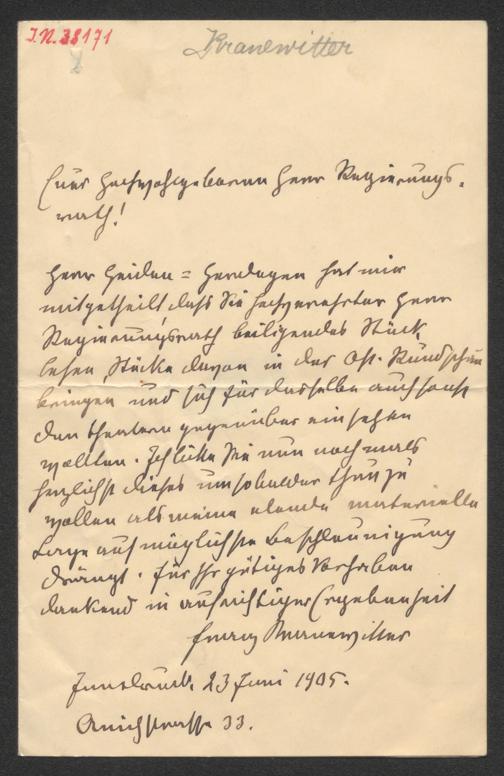 I.N. 38171
Kranewitter
Euer Hochwohlgeboren Herr Regierungs-
rath!
Herr Heider = Herdegen hat mir
mitgetheilt dass Sie hochverehrter Herr
Regierungsrath beiligendes Stück
lesen, Stücke davon in der Öst. Rundschau
bringen und sich für dasselbe auch sonst
den Theatern gegenüber einsetzen
wollten. Ich bitte Sie nun nochmals
herzlichst dieses umsobalder thun zu
wollen als meine elende materielle
Lage auf möglichste Beschleunigung
drängt. Für Ihr gütiges Vorhaben
dankend in aufrichtiger Ergebenheit
Franz Kranewitter
Innsbruck 23 Juni 1905.
Anichstrasse 33.